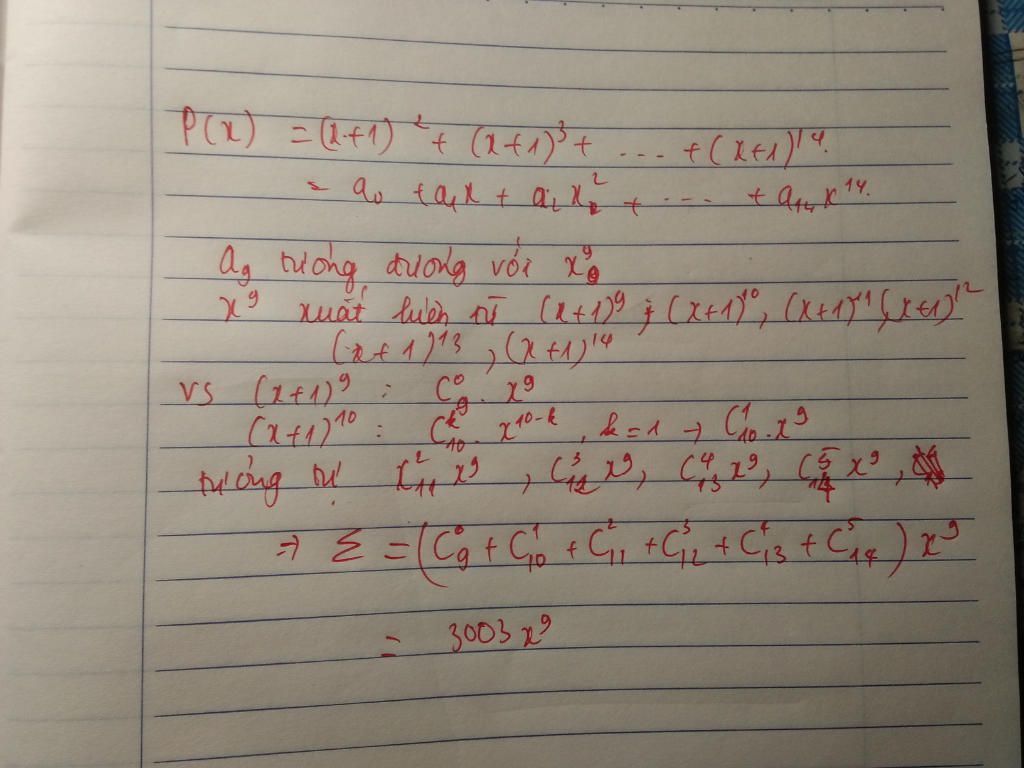 P(x) = (x+1)² + (x+1)³ + .... + (x+1)¹⁴.
= a₀ + a₁x + a₂x² + .... + a₁₄x¹⁴.
a₉ tương đương với x⁹
x⁹ xuất hiện từ (x+1)⁹; (x+1)¹⁰, (x+1)¹¹, (x+1)¹²
(x+1)¹³, (x+1)¹⁴
vs (x+1)⁹ : C₉⁰. x⁹
(x+1)¹⁰ : C₁₀ᵏ. x¹⁰⁻ᵏ, k=1 → C₁₀¹.x⁹
tương tự C₁₁² x⁹, C₁₂³ x⁹, C₁₃⁴ x⁹, C₁₄⁵ x⁹,
⇒ Σ = (C₉⁰ + C₁₀¹ + C₁₁² + C₁₂³ + C₁₃⁴ + C₁₄⁵) x⁹
= 3003 x⁹